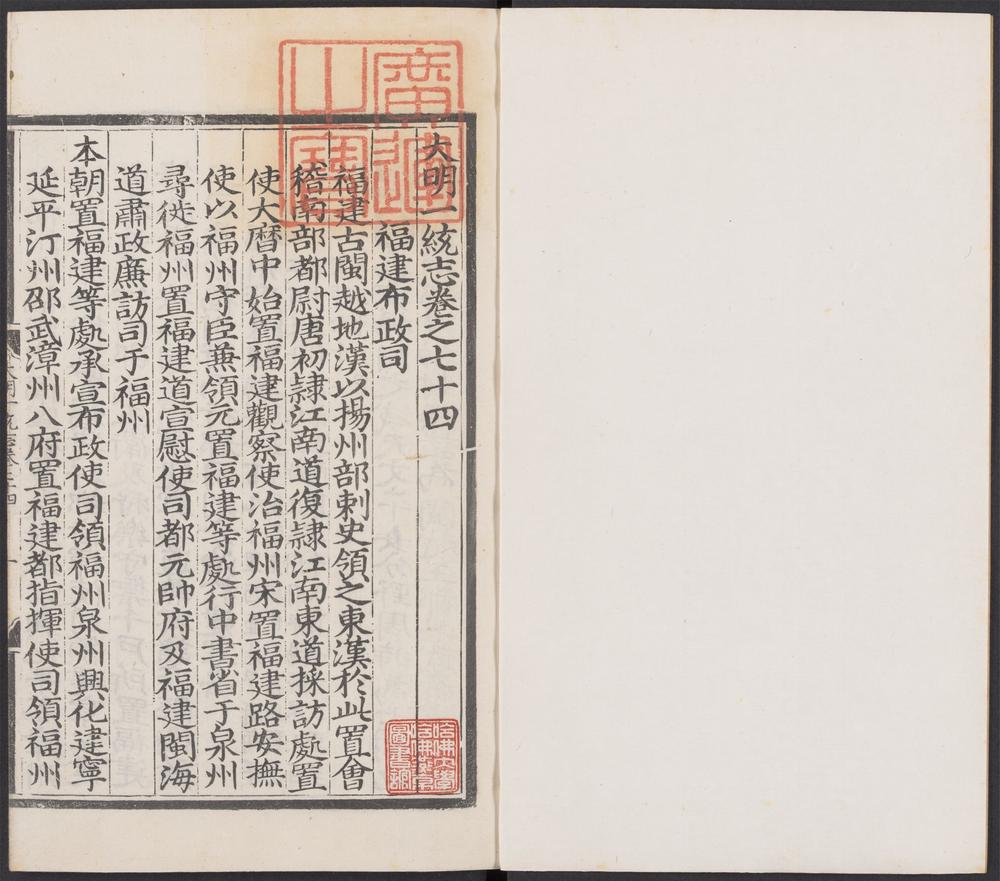 大明一統志卷之七十四
福建布政司
福建古閩越地漢以揚州部刺史領之東漢於此置會
稽南部都尉唐初隷江南道復隷江南東道採訪處置
使大曆中始置福建觀察使治福州宋置福建路安撫
使以福州守臣兼領元置福建等處行中書省于泉州
尋徙福州置福建道宣慰使司都元帥府及福建閩海
道肅政廉訪司于福州
本朝置福建等處承宣布政使司領福州泉州興化建寧
延平汀州邵武漳州八府置福建都指揮使司領福州
廣運之寶
哈佛大學
圖書館